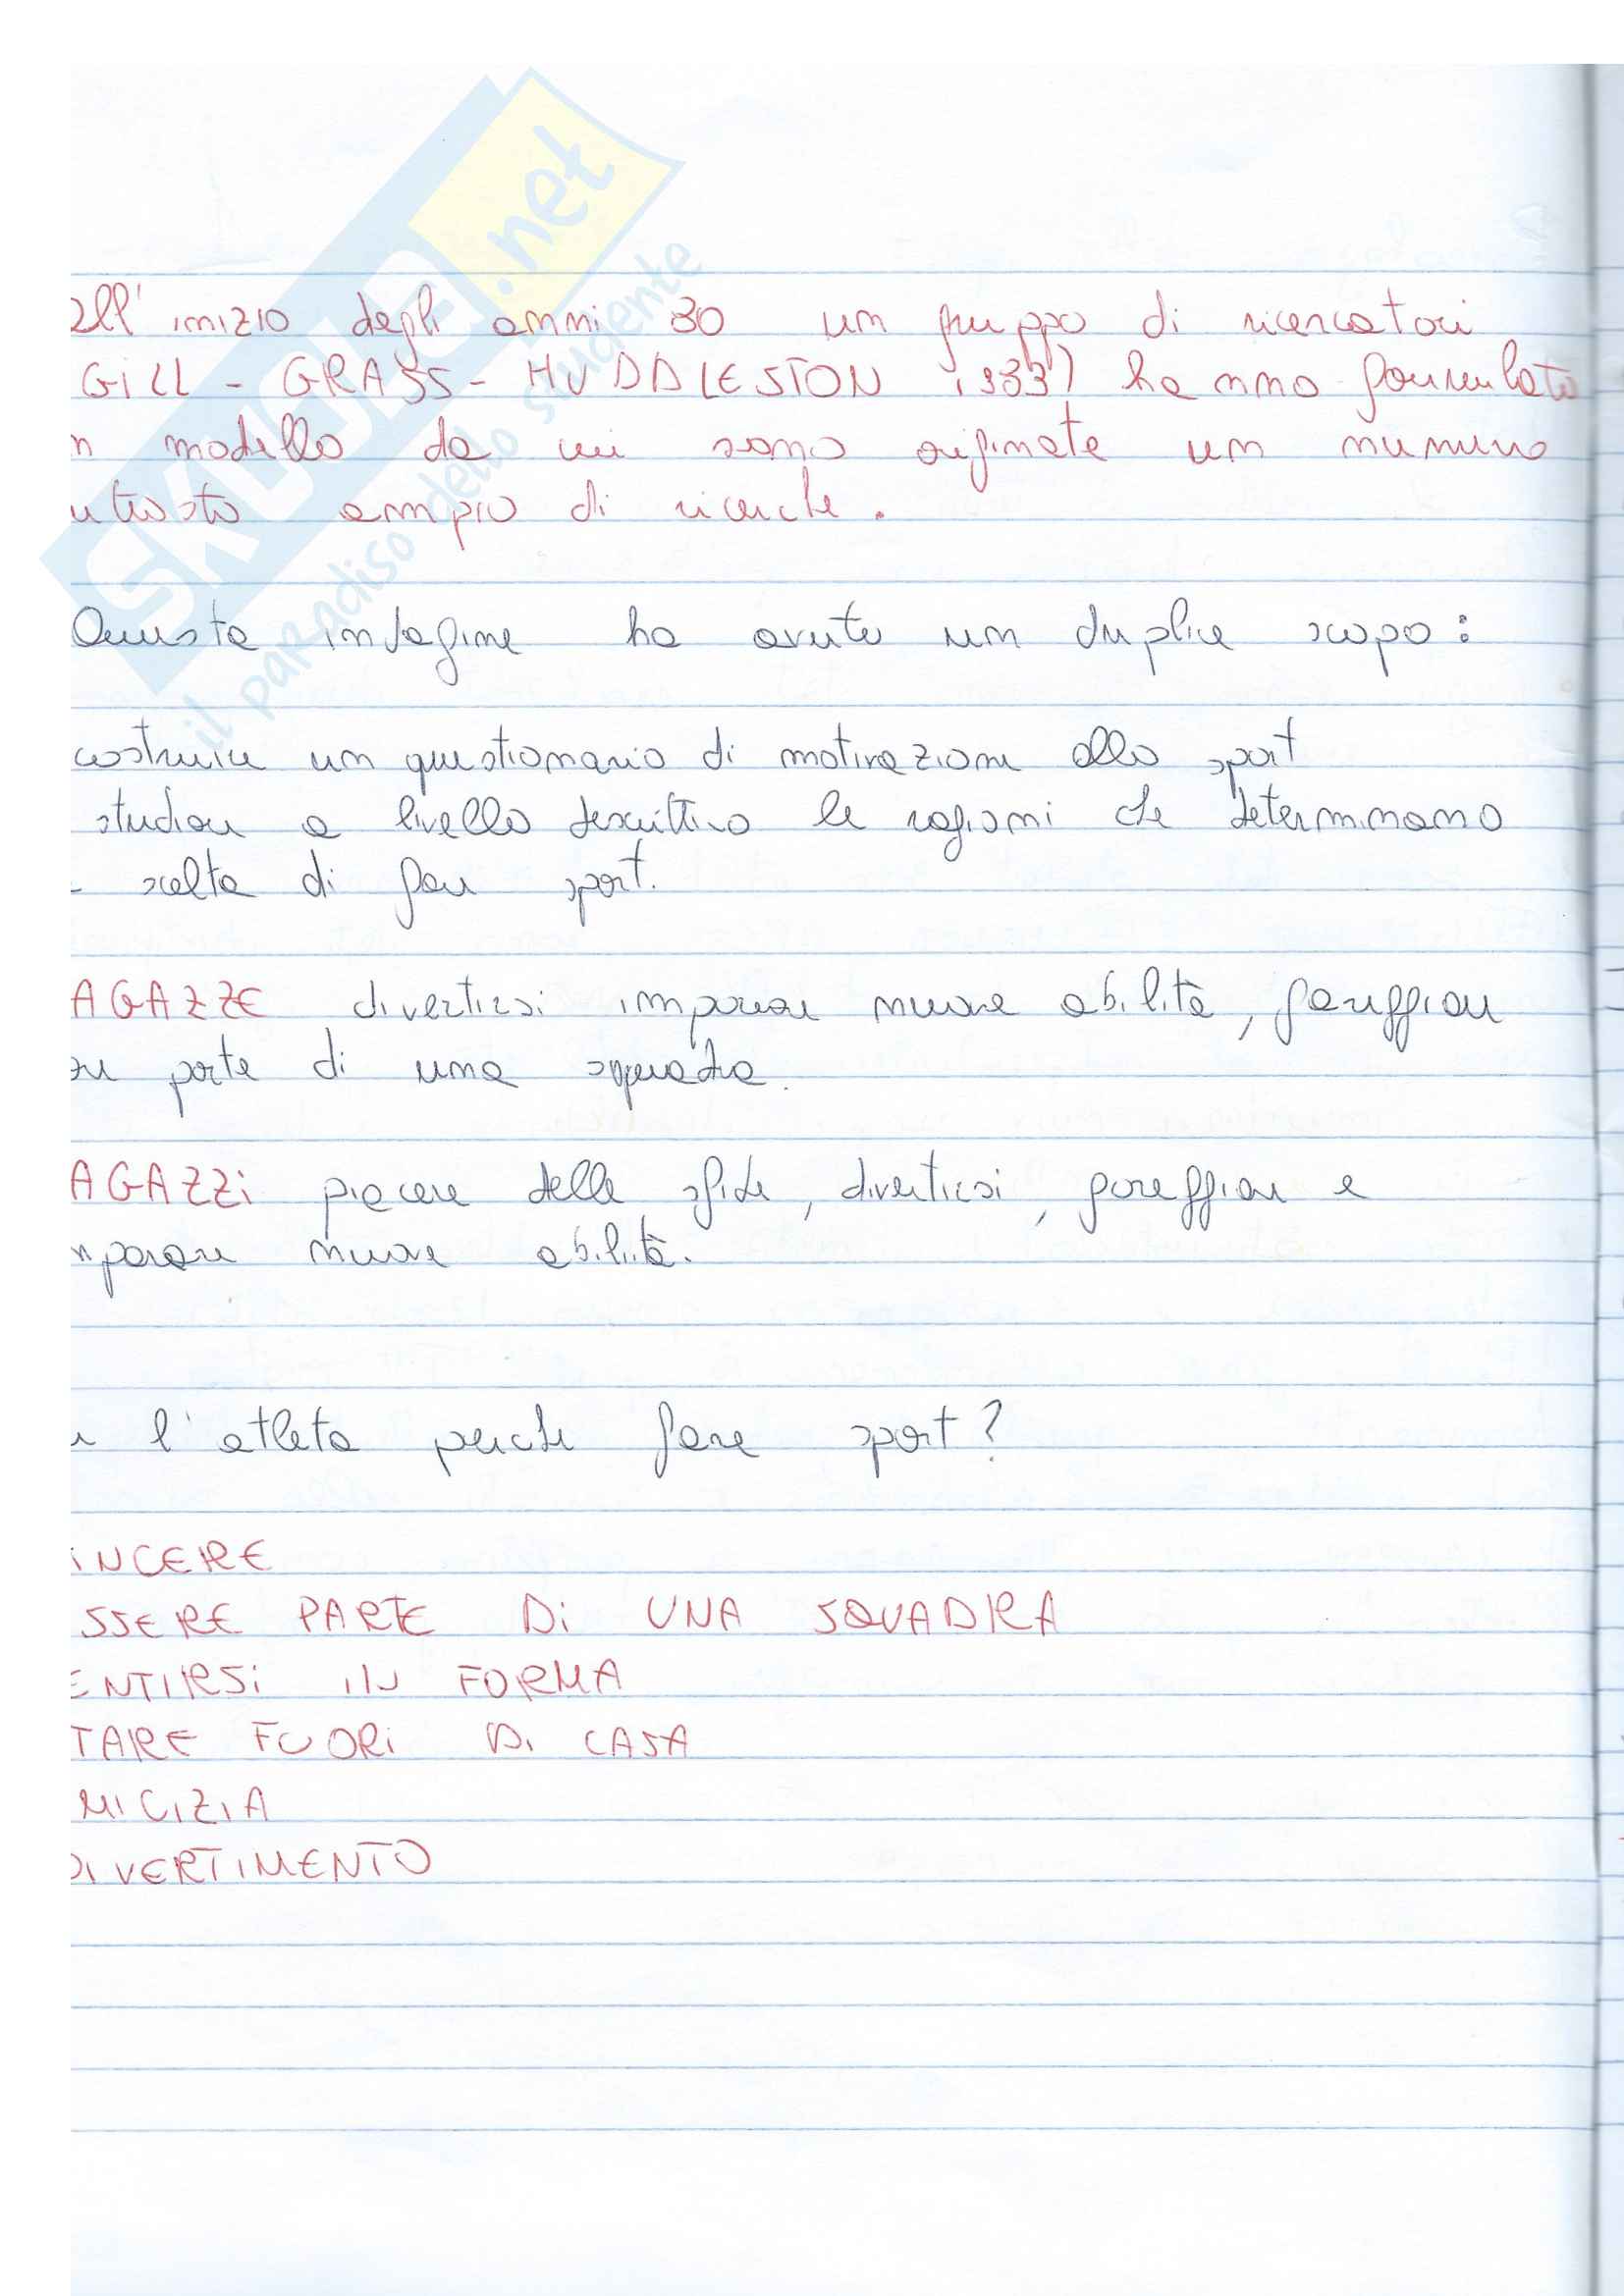 SKUOLA.net
il paradiso dello studente
all'inizio degli anni 80 un gruppo di ricercatori
GILL - GRASS - HUDDLESTON 1983) hanno formulato
n modello da cui sono originate un numero
uttosto ampio di ricerche.
Questa indagine ha avuto un duplice scopo:
costruire un questionario di motivazione allo sport
studiare a livello descrittivo le ragioni che determinano
scelta di fare sport.
AGAZZE divertirsi imparare nuove abilità, gareggiare
parte di una squadra.
AGAZZI piacere delle sfide, divertirsi, gareggiare e
mparare nuove abilità.
l'atleta perche fare sport?
INCERE
SSERE PARTE Di UNA SQUADRA
ENTIRSi IN FORMA
TARE FUORi Di CASA
MICIZIA
DIVERTIMENTO